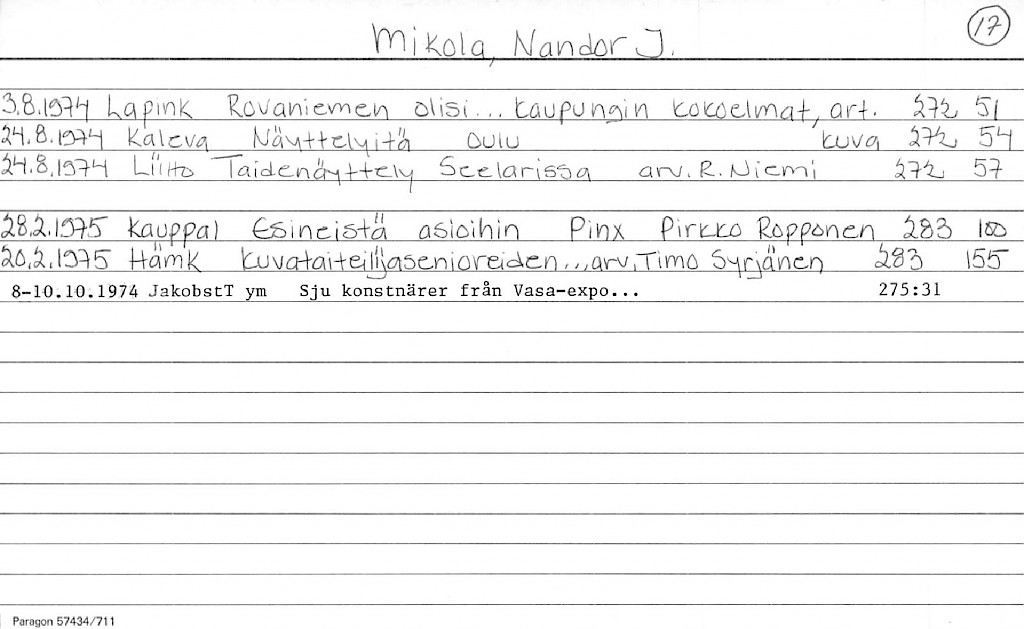 17
Mikola, Nandor J.
3.8.1974 Lapink Rovaniemen olisi... kaupungin kokoelmat, art. 272 51
24.8.1974 Kaleva Näyttelyitä Oulu kuva 272 54
24.8.1974 Liitto Taidenäyttely Seelarissa arv. R. Niemi 272 57
28.2.1975 Kauppal Esineistä asioihin Pinx Pirkko Ropponen 283 100
20.2.1975 Hämk kuvataiteilijasenioreiden... arv. Timo Syrjänen 283 155
8-10.10.1974 JakobstT ym Sju konstnärer från Vasa-expo... 275:31
Paragon 57434/711